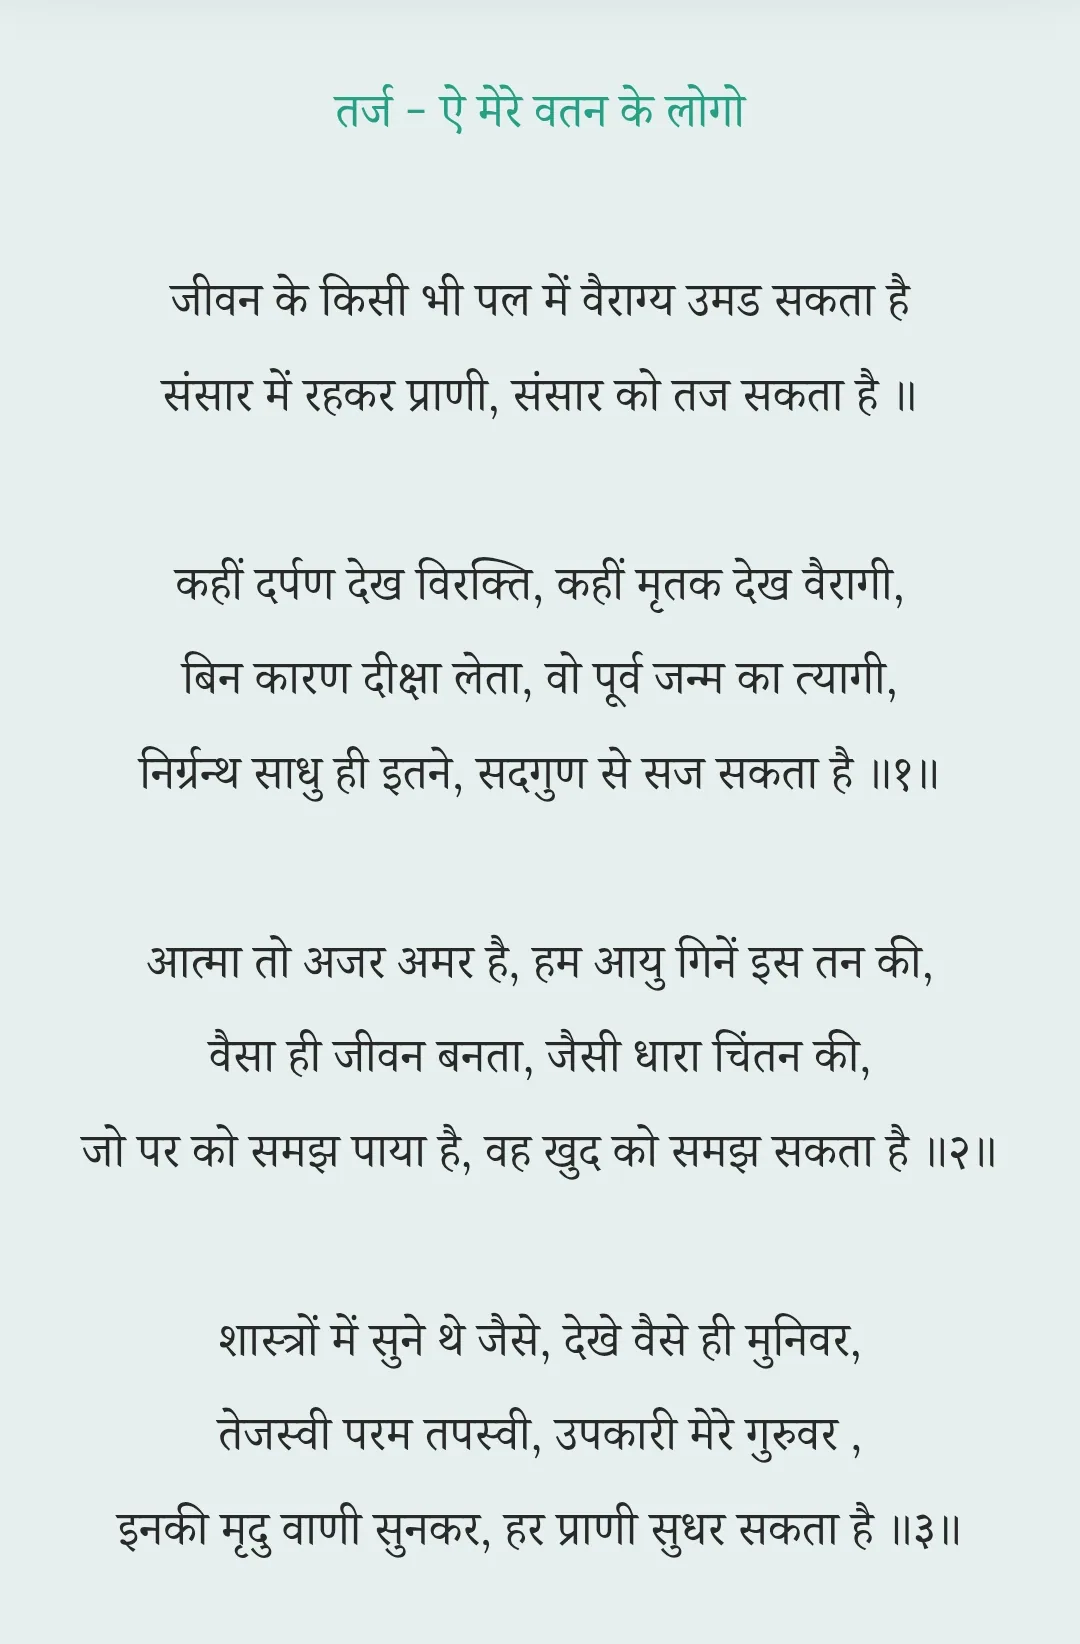 तर्ज - ऐ मेरे वतन के लोगो
जीवन के किसी भी पल में वैराग्य उमड सकता है
संसार में रहकर प्राणी, संसार को तज सकता है ॥
कहीं दर्पण देख विरक्ति, कहीं मृतक देख वैरागी,
बिन कारण दीक्षा लेता, वो पूर्व जन्म का त्यागी,
निर्ग्रन्थ साधु ही इतने, सदगुण से सज सकता है ॥१॥
आत्मा तो अजर अमर है, हम आयु गिनें इस तन की,
वैसा ही जीवन बनता, जैसी धारा चिंतन की,
जो पर को समझ पाया है, वह खुद को समझ सकता है ॥२॥
शास्त्रों में सुने थे जैसे, देखे वैसे ही मुनिवर,
तेजस्वी परम तपस्वी, उपकारी मेरे गुरुवर ,
इनकी मृदु वाणी सुनकर, हर प्राणी सुधर सकता है ॥३॥